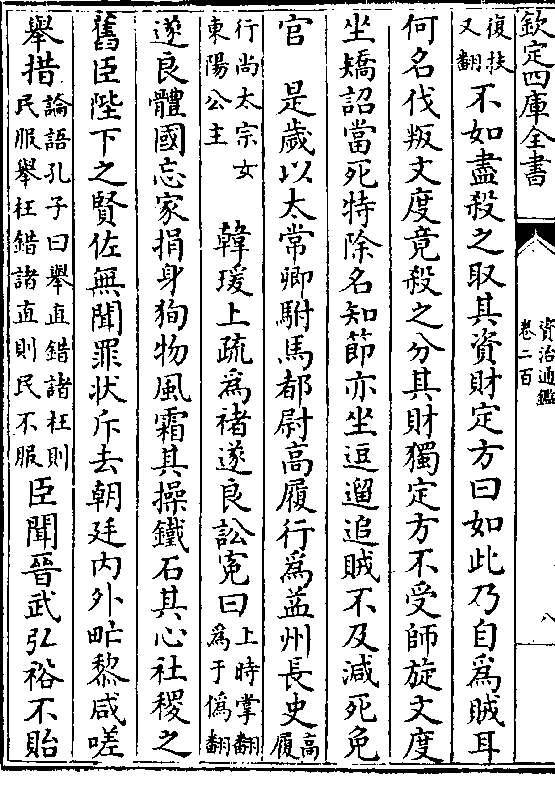 欽定四庫全書
資治通鑑
卷二百
八
復扶又翻不如盡殺之取其資財定方曰如此乃自為賊耳
何名伐叛文度竟殺之分其財獨定方不受師旋文度
坐矯詔當死特除名知節亦坐逗遛追賊不及減死免
官 是歲以太常卿駙馬都尉高履行為益州長史高履
行尚太宗女東陽公主 韓瑗上疏為褚遂良訟冤曰上時掌翻為于偽翻
遂良體國忘家捐身徇物風霜其操鐵石其心社稷之
舊臣陛下之賢佐無聞罪狀斥去朝廷内外甿黎咸嗟
舉措論語孔子曰舉直錯諸枉則民服舉枉錯諸直則民不服臣聞晉武弘裕不貽